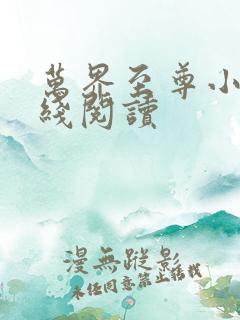 萬界至尊小
綫閱讀
漫無蹤影
未經同意禁止轉載